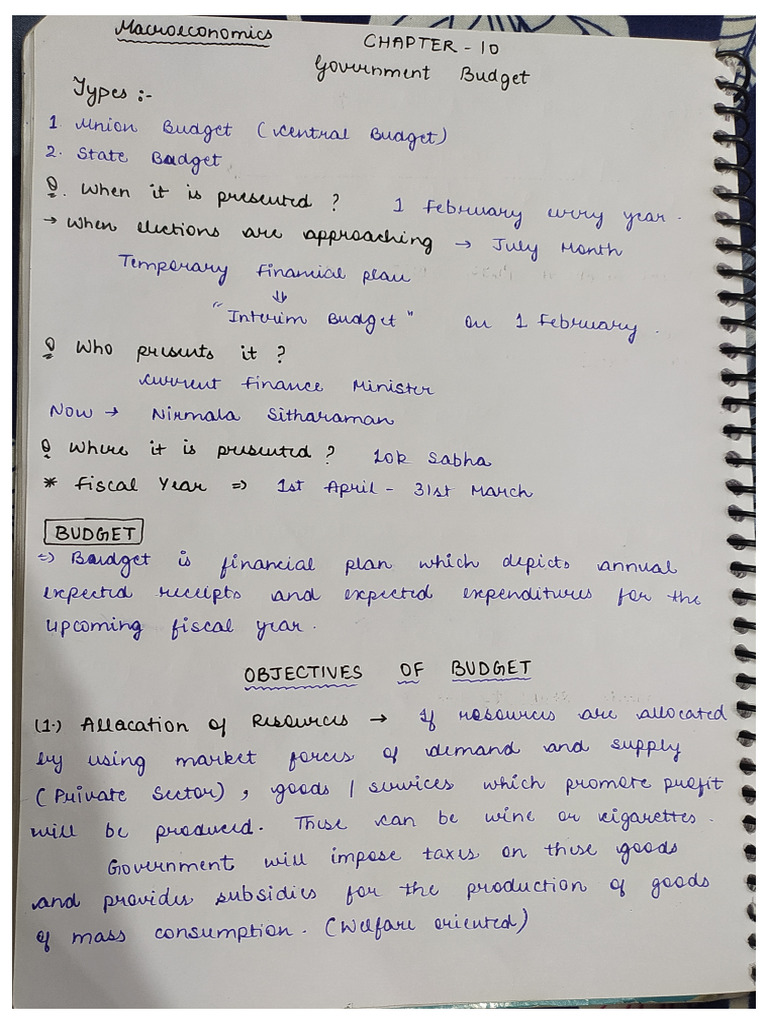 Macroeconomics
CHAPTER - 10
Government Budget
Types :-
1. Union Budget (Central Budget)
2. State Budget
Q. When it is presented ? 1 February every year.
→ When elections are approaching → July Month
Temporary Financial plan
⇓
"Interim Budget" on 1 February.
Q Who presents it ?
Current Finance Minister
Now → Nirmala Sitharaman
Q Where it is presented ? Lok Sabha
* Fiscal Year ⇒ 1st April - 31st March
BUDGET
⇒ Budget is financial plan which depicts annual
expected receipts and expected expenditures for the
upcoming fiscal year.
OBJECTIVES OF BUDGET
(1.) Allacation of Resources → If resources are allocated
by using market forces of demand and supply
(Private Sector), goods / services which promote profit
will be produced. These can be wine or cigarettes.
Government will impose taxes on these goods
and provides subsidies for the production of goods
of mass consumption. (Welfare oriented)